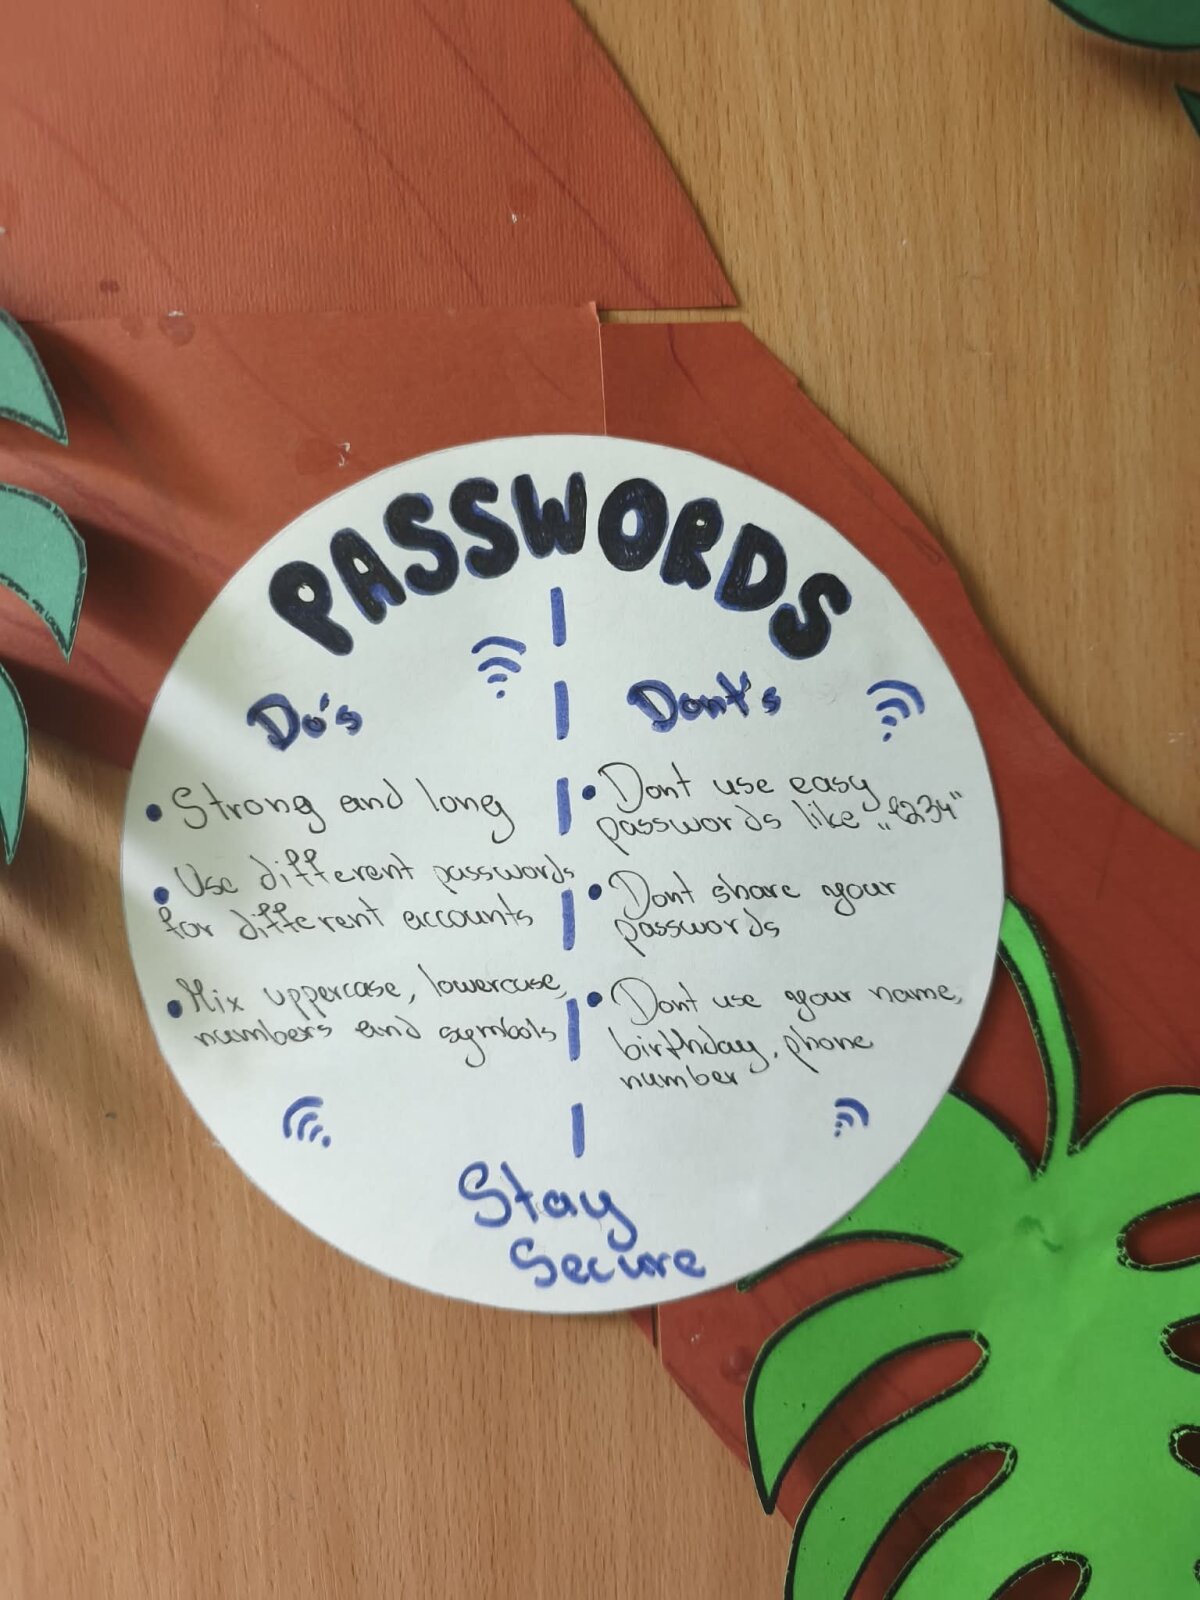 PASSWORDS
Do's
• Strong and long
• Use different passwords
for different accounts
• Mix uppercase, lowercase,
numbers and symbols
Dont's
• Dont use easy
passwords like „1234"
• Dont share your
passwords
• Dont use your name,
birthday, phone
number
Stay
Secure